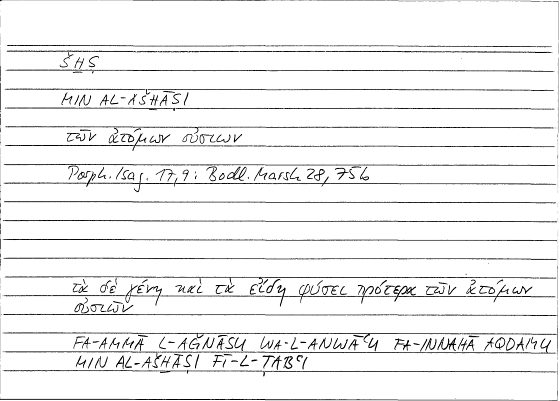 ŠḪṢ
MIN AL-AŠḪĀṢI
τῶν ἀτόμων οὐσιῶν
Porph. Isag. 17,9: Bodl. Marsh 28, 75b
τὰ δὲ γένη καὶ τὰ εἴδη φύσει πρότερα τῶν ἀτόμων
οὐσιῶν
FA-AMMĀ L-AǦNĀSU WA-L-ANWĀʿU FA-INNAHĀ AQDAMU
MIN AL-AŠḪĀṢI FĪ-L-ṬABʿI